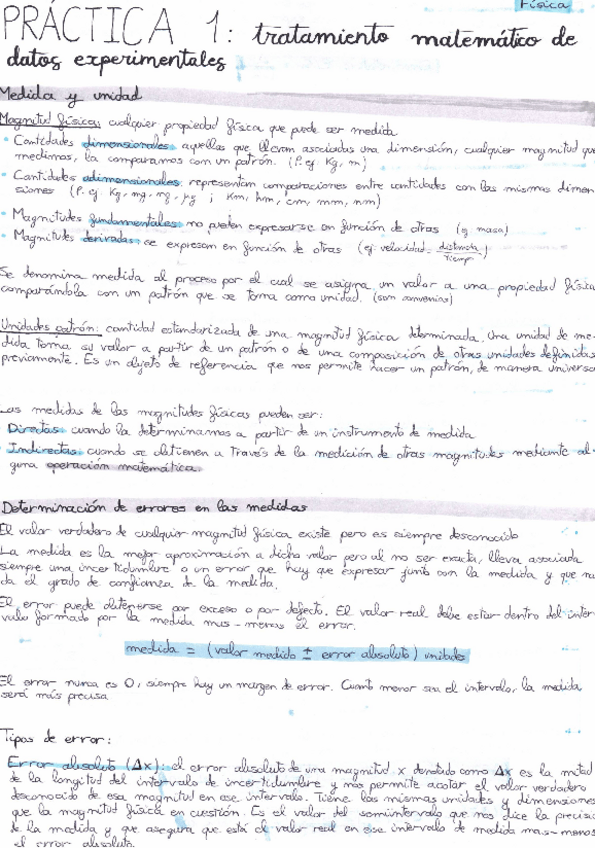 Física
PRÁCTICA 1: tratamiento matemático de
datos experimentales
Medida y unidad
Magnitud física: cualquier propiedad física que puede ser medida
• Cantidades dimensionales: aquellas que llevan asociadas una dimensión, cualquier magnitud que
medimos, la comparamos con un patrón. (P.ej: Kg, m)
• Cantidades adimensionales: representan comparaciones entre cantidades con las mismas dimen
siones (P.ej: Kg, mg, ng, µg ; Km, hm, cm, mm, nm)
• Magnitudes fundamentales: no pueden expresarse en función de otras (ej masa)
• Magnitudes derivadas: se expresan en función de otras (ej: velocidad = distancia/tiempo)
Se denomina medida al proceso por el cual se asigna un valor a una propiedad física
comparándola con un patrón que se toma como unidad. (son convenios)
Unidades patrón: cantidad estandarizada de una magnitud física determinada. Una unidad de me-
dida toma su valor a partir de un patrón o de una composición de otras unidades definidas
previamente. Es un objeto de referencia que nos permite hacer un patrón, de manera universa
Las medidas de las magnitudes físicas pueden ser:
• Directas: cuando la determinamos a partir de un instrumento de medida
• Indirectas: cuando se obtienen a través de la medición de otras magnitudes mediante al-
guna operación matemática.
Determinación de errores en las medidas
El valor verdadero de cualquier magnitud física existe pero es siempre desconocido
La medida es la mejor aproximación a dicho valor pero al no ser exacta, lleva asociada
siempre una incertidumbre o un error que hay que expresar junto con la medida y que nos
da el grado de confianza de la medida.
El error puede obtenerse por exceso o por defecto. El valor real debe estar dentro del inter-
valo formado por la medida más-menos el error.
medida = (valor medido ± error absoluto) unidades
El error nunca es 0, siempre hay un margen de error. Cuanto menor sea el intervalo, la medida
será más precisa
Tipos de error:
Error absoluto (Δx): el error absoluto de una magnitud x denotado como Δx es la mitad
de la longitud del intervalo de incertidumbre y nos permite acotar el valor verdadero
desconocido de esa magnitud en ese intervalo. Tiene las mismas unidades y dimensiones
que la magnitud física en cuestión. Es el valor del semiintervalo que nos dice la precisión
de la medida y que asegura que está el valor real en ese intervalo de medida más-menos
el error absoluto.